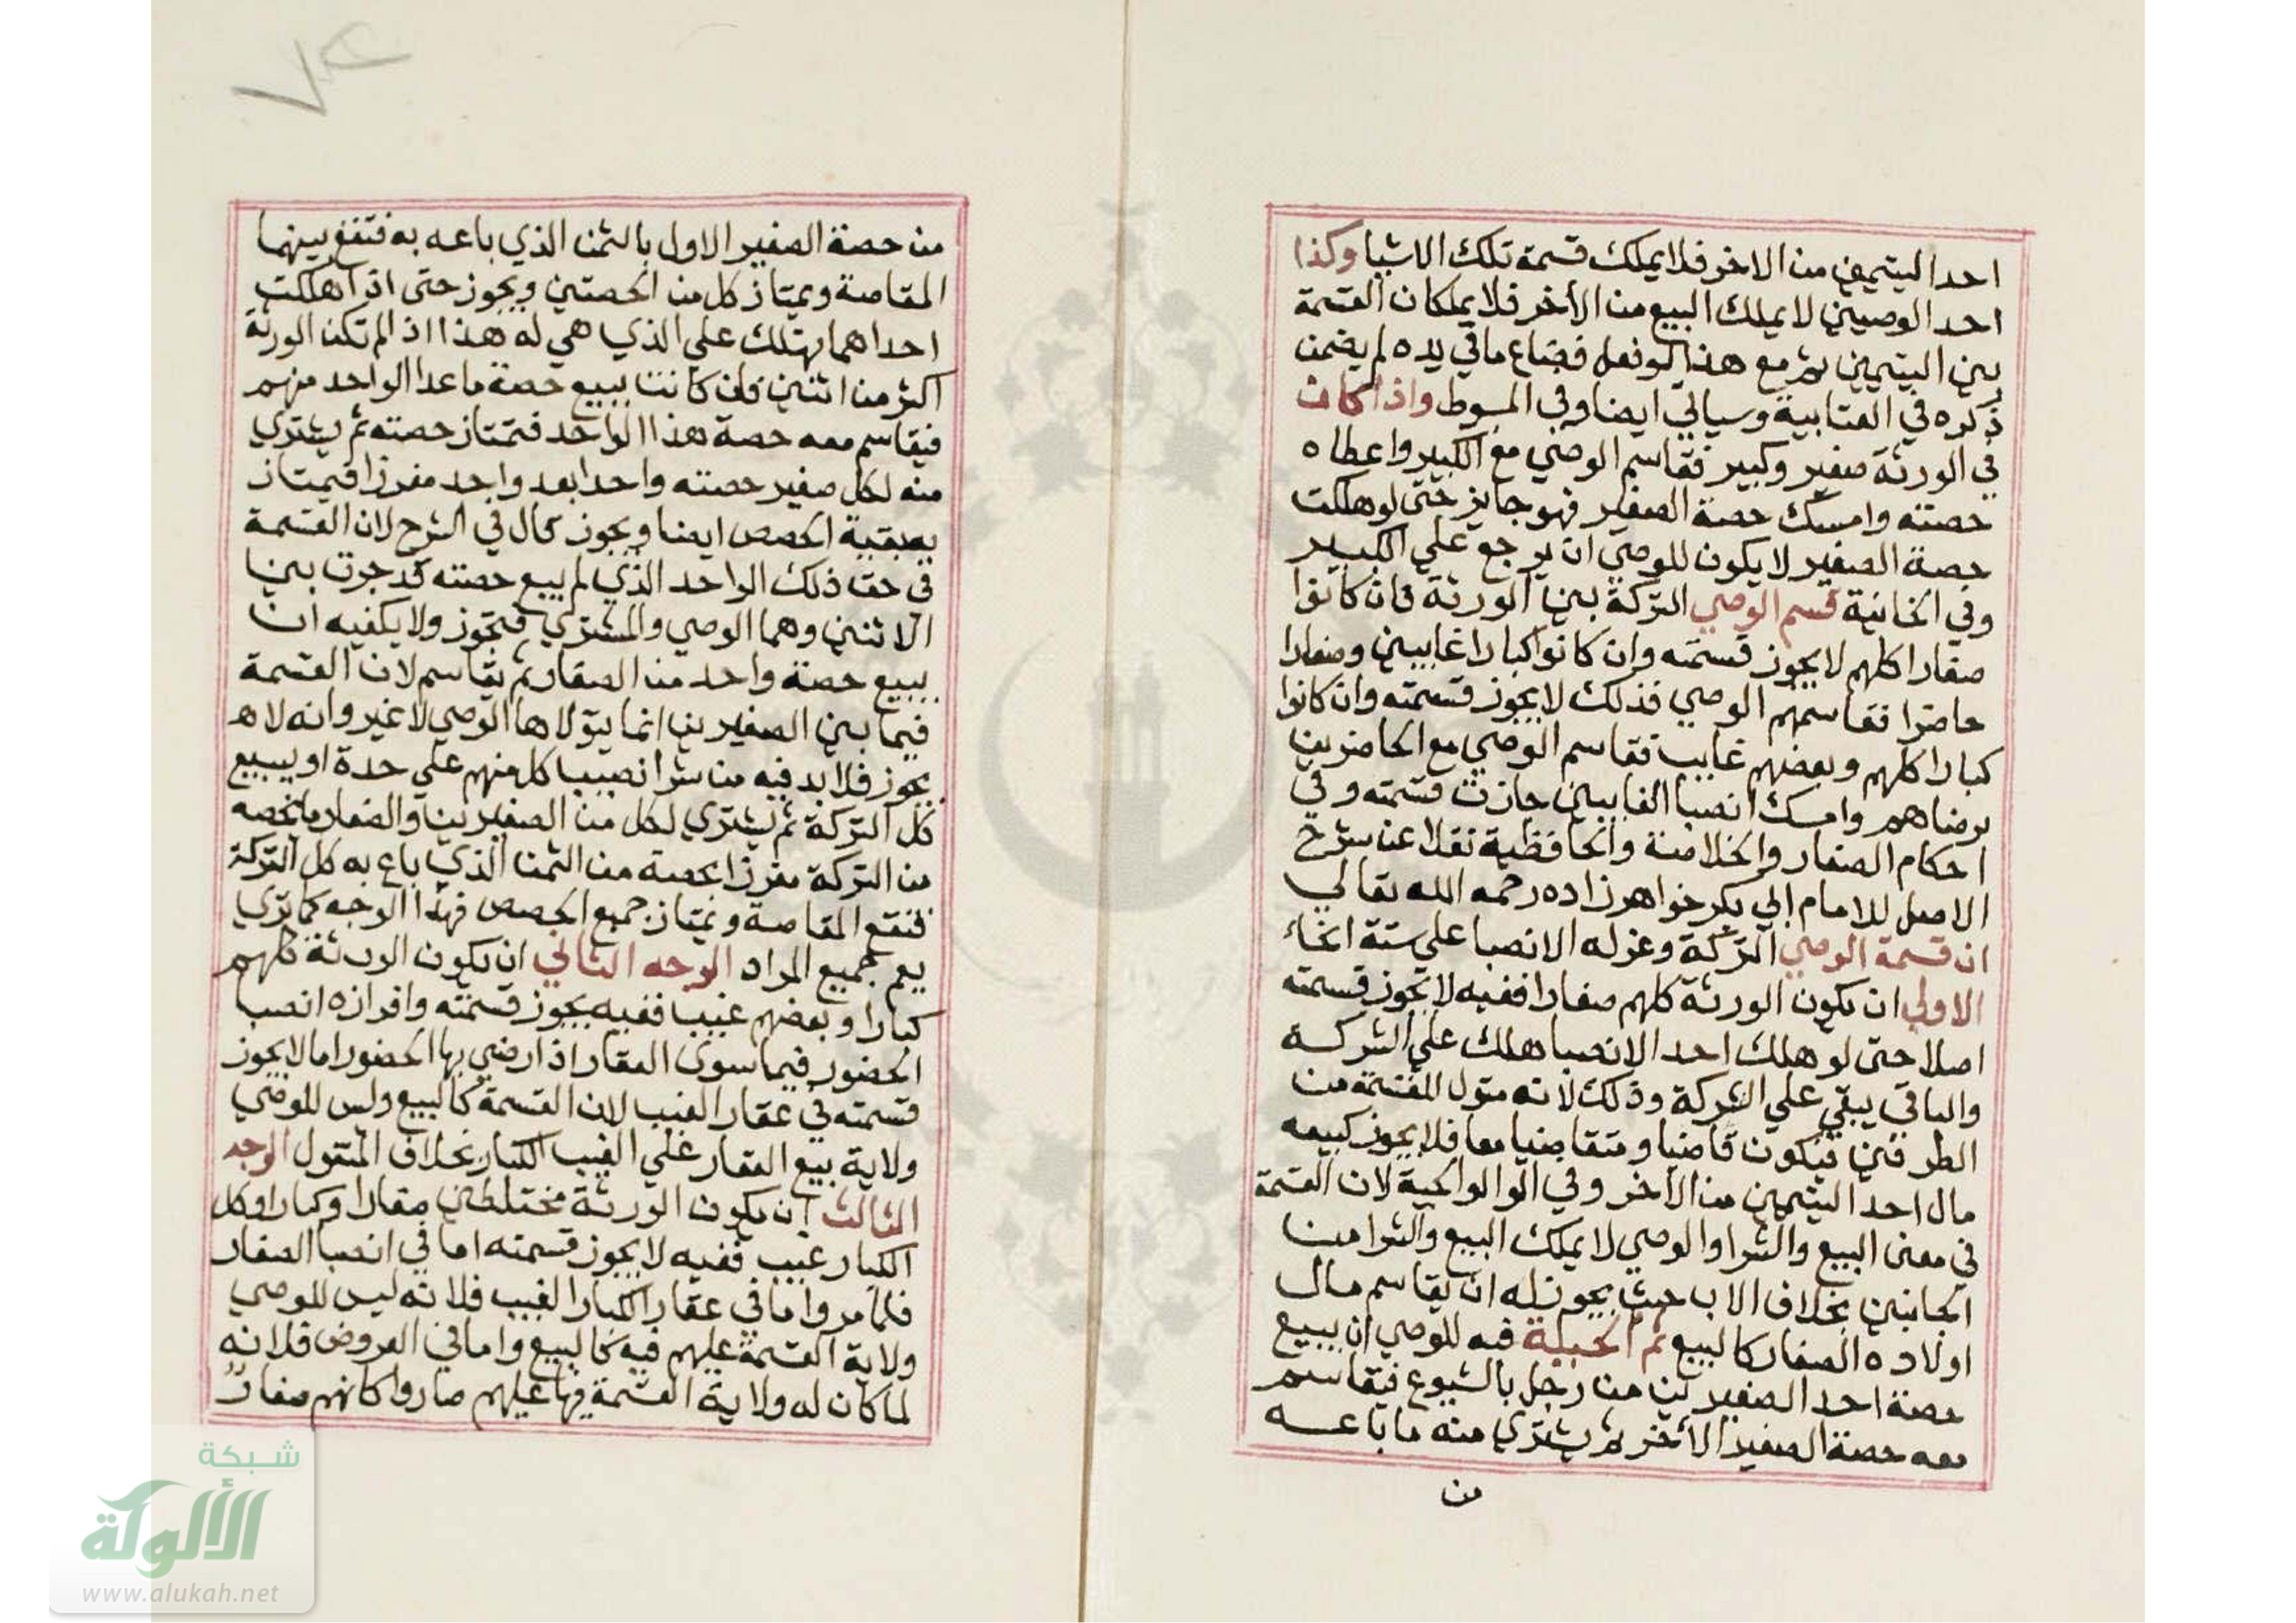 احد اليتيمين من الاخر فلا يملك قسمة تلك الاشيا وكذا
احد الوصيين لا يملك البيع من الأخر فلا يملكان القسمة
بين اليتيمين ثم مع هذا لو فعل فضاع ما في يده لم يضمن
ذكره في العتابية وسياتي ايضا وفي المبسوط واذا كان
في الورثة صغير وكبير فقاسم الوصي مع الكبير واعطاه
حصته وامسك حصة الصغير فهو جايز حتى لو هلكت
حصة الصغير لا يكون للوصي ان يرجع علي الكبير
وفي الخانية قسم الوصي التركة بين الورثة فان كانوا
صغارا كلهم لا يجوز قسمته وان كانوا كبارا غايبين وصغارا
حاضرا فقاسمهم الوصي فذلك لا يجوز قسمته وان كانوا
كبارا كلهم وبعضهم غايب فقاسم الوصي مع الحاضرين
برضاهم وامسك انصبا الغايبين جازت قسمته وفي
احكام الصغار والخلاصة والحافظية نقلا عن شرح
الاصل للامام ابي بكر خواهر زاده رحمه الله تعالي
ان قسمة الوصي التركة وعزله الانصبا علي ستة انحاء
الاولي ان يكون الورثة كلهم صغارا ففيه لا يجوز قسمته
اصلا حتى لو هلك احد الانصبا هلك علي الشركة
والباقي يبقي علي الشركة وذلك لانه متول للقسمة من
الطرفين فيكون قاضيا ومتقاضيا معا فلا يجوز كبيعه
مال احد اليتيمين من الأخر وفي الوالوالجية لان القسمة
في معنى البيع والشرا والوصي لا يملك البيع والشرا من
الجانبين بخلاف الاب حيث يجوز له ان يقاسم مال
اولاده الصغار كالبيع ثم الحيلة فيه للوصي ان يبيع
حصة احد الصغيرين من رجل بالشيوع فيقاسم
معه حصة الصغير الأخر ثم يشتري منه ما باعه
من
من حصة الصغير الاول بالثمن الذي باعه به فتقع بينهما
المقاصة ويمتاز كل من الحصتين ويجوز حتى اذا هلكت
احداهما تهلك علي الذي هي له هذا اذا لم تكن الورثة
اكثر من اثنين فان كانت يبيع حصة ما عدا الواحد منهم
فيقاسم معه حصة هذا الواحد فتمتاز حصته ثم يشتري
منه لكل صغير حصته واحدا بعد واحد مفرزا فيمتاز
بقية الحصص ايضا ويجوز قال في الشرح لان القسمة
في حق ذلك الواحد الذي لم يبع حصته قد جرت بين
الاثنين وهما الوصي والمشتري فتجوز ولا يكفيه ان
يبيع حصة واحد من الصغار ثم يقاسم لان القسمة
فيما بين الصغيرين انما يتولاها الوصي لا غير وانه لا ه
يجوز فلا بد فيه من شرا نصيب كل منهم علي حدة او يبيع
كل التركة ثم يشتري لكل من الصغيرين والصغار ما يخصه
من التركة مفرزا بحصته من الثمن الذي باع به كل التركة
فتقع المقاصة ونمتاز جميع الحصص فهذا الوجه كما تري
يعم جميع المراد الوجه الثاني ان يكون الورثة كلهم
كبارا وبعضهم غيب ففيه يجوز قسمته وافرازه انصبا
الحضور فيما سوى العقار اذا رضي بها الحضور اما لا يجوز
قسمته في عقار الغيب لان القسمة كالبيع وليس للوصي
ولاية بيع العقار علي الغيب الكبار بخلاف المنقول الوجه
الثالث ان يكون الورثة مختلطين صغارا وكبارا وكل
الكبار غيب ففيه لا يجوز قسمته اما في انصبا الصغار
فلما مر واما في عقار الكبار الغيب فلانه ليس للوصي
ولاية القسمة عليهم فيه كالبيع واما في العروض فلانه
لما كان له ولاية القسمة فيها عليهم صاروا كانهم صغار
شبكة
الألوكة
www.alukah.net